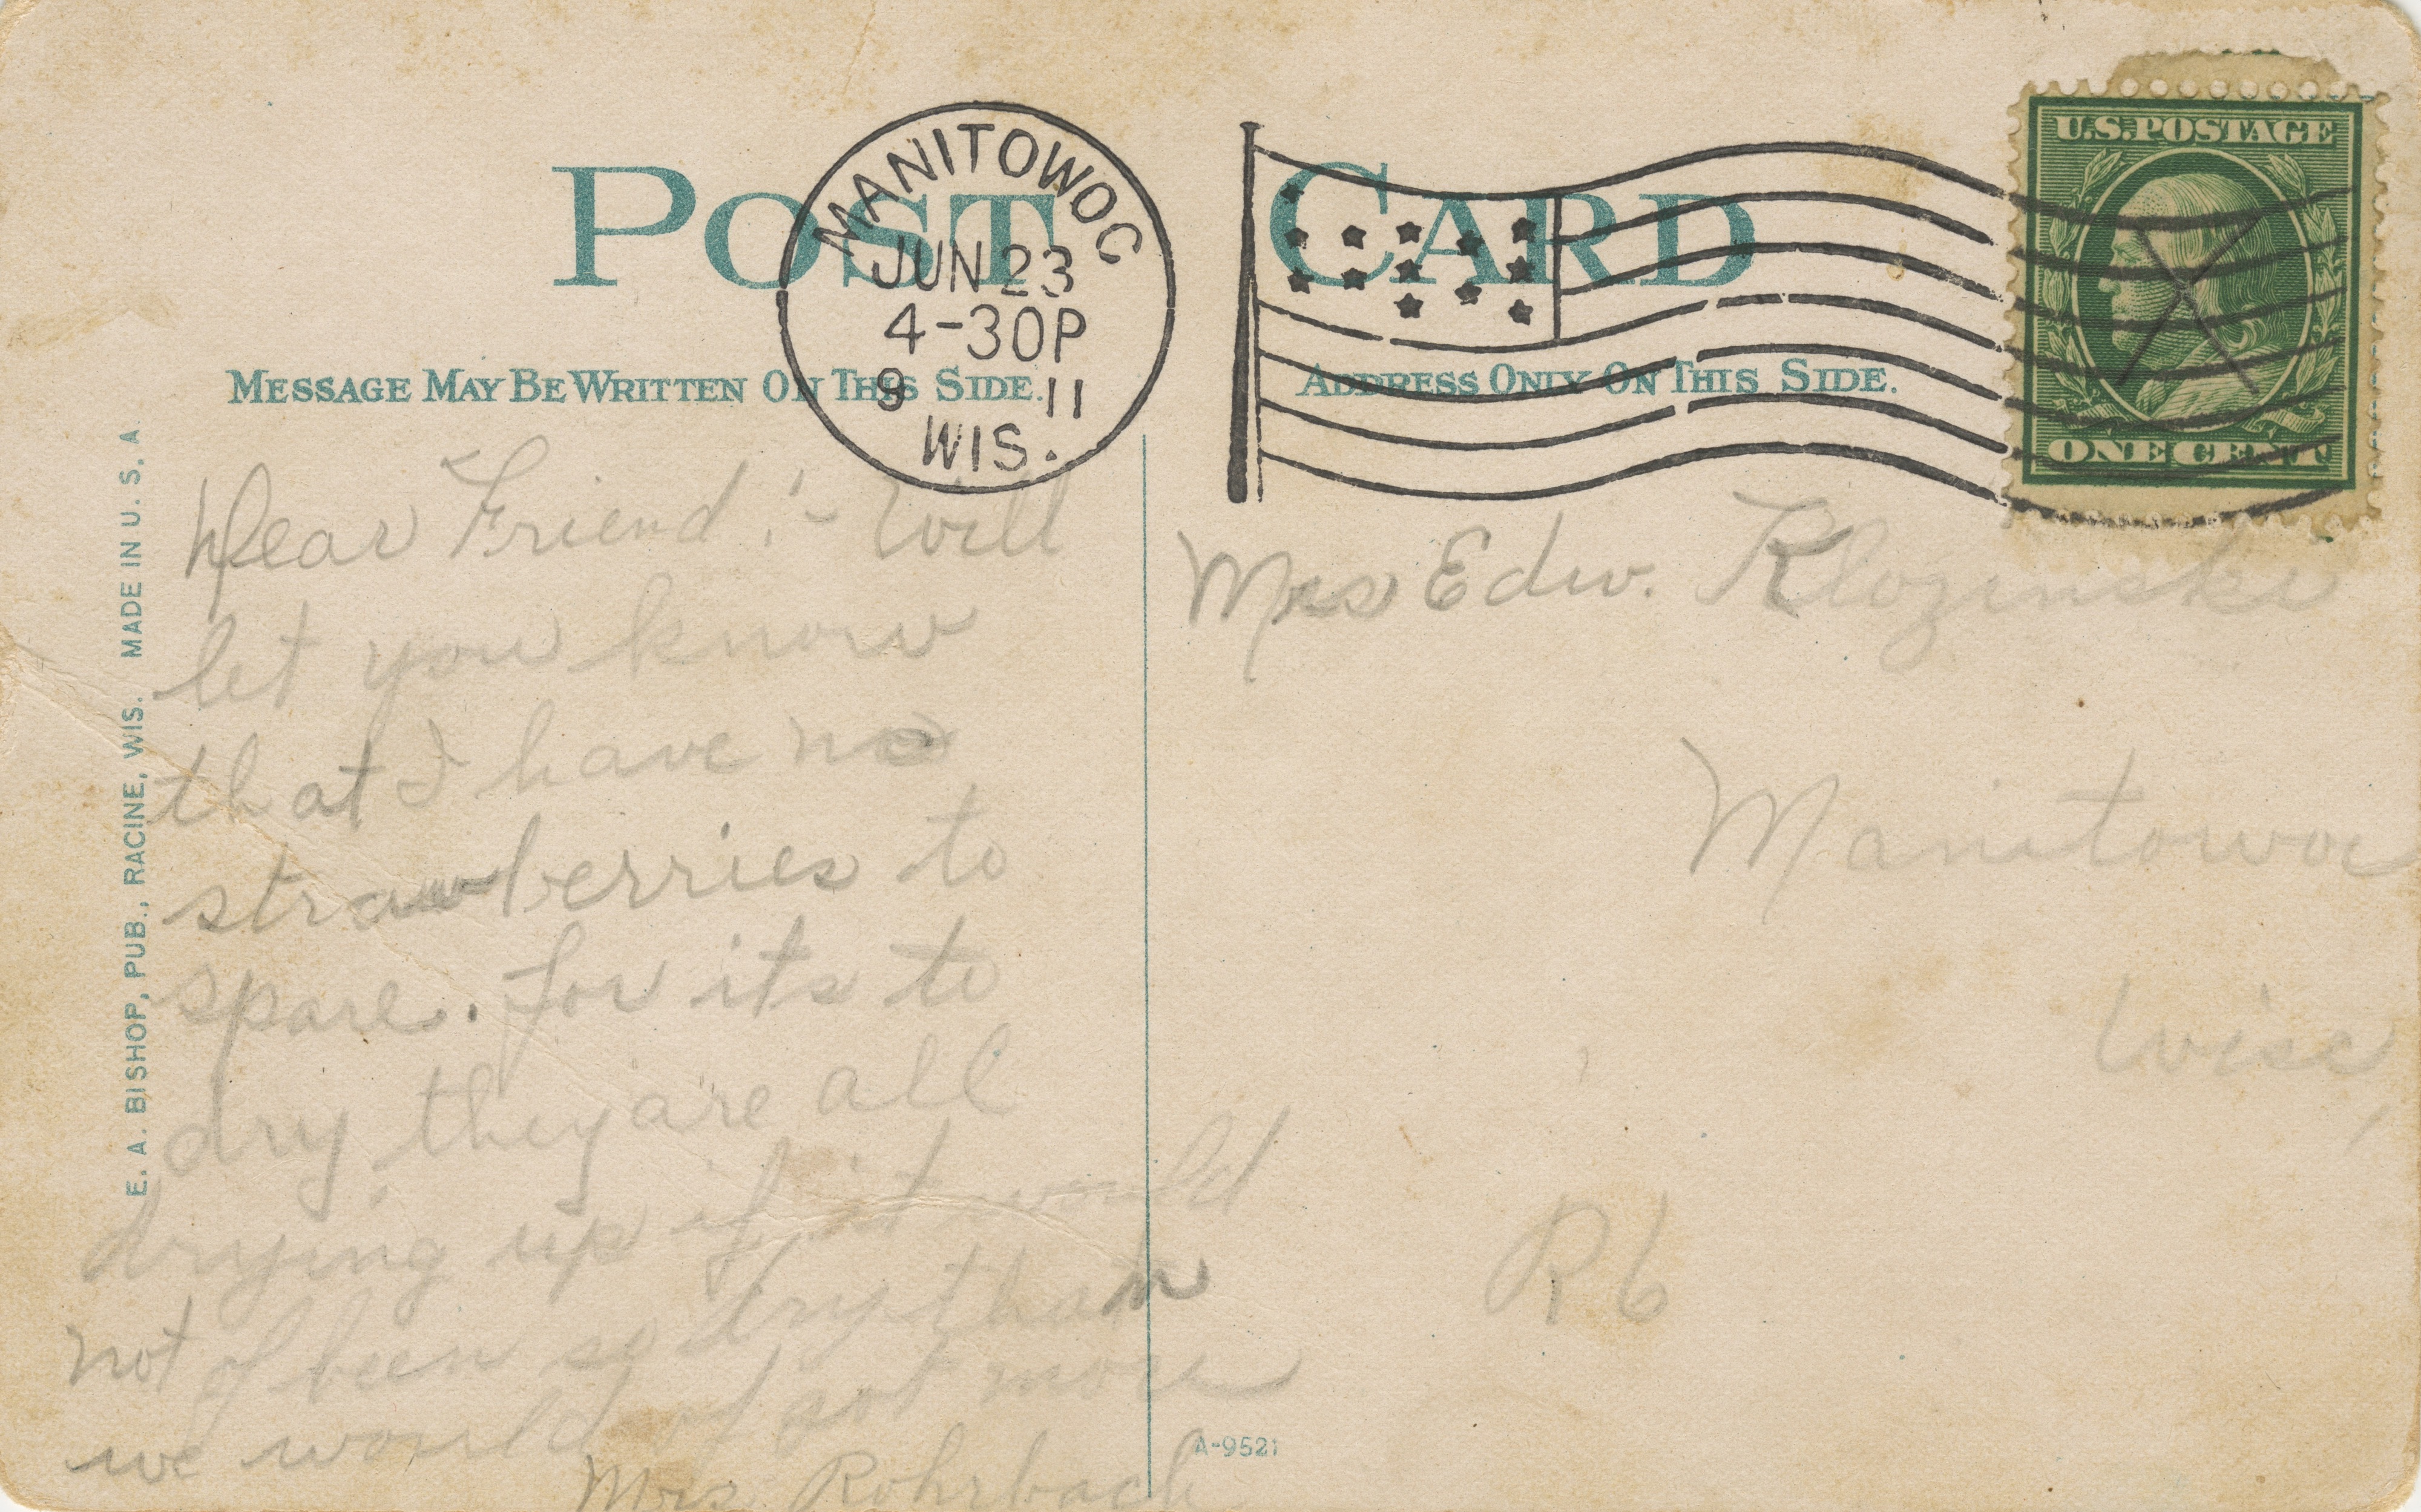 POST CARD
MANITOWOC
JUN 23
4-30P
9 11
WIS.
U.S. POSTAGE
ONE CENT
MESSAGE MAY BE WRITTEN ON THIS SIDE.
ADDRESS ONLY ON THIS SIDE.
E. A. BISHOP, PUB., RACINE, WIS. MADE IN U. S. A
Dear Friend :- Will
let you know
that I have no
strawberries to
spare. for its to
dry they are all
drying up if it would
not of been so dry than
we would of got more
Mrs. Rohrbach
Mrs Edw. Klozinski
Manitowoc
Wisc,
R 6
A-9521